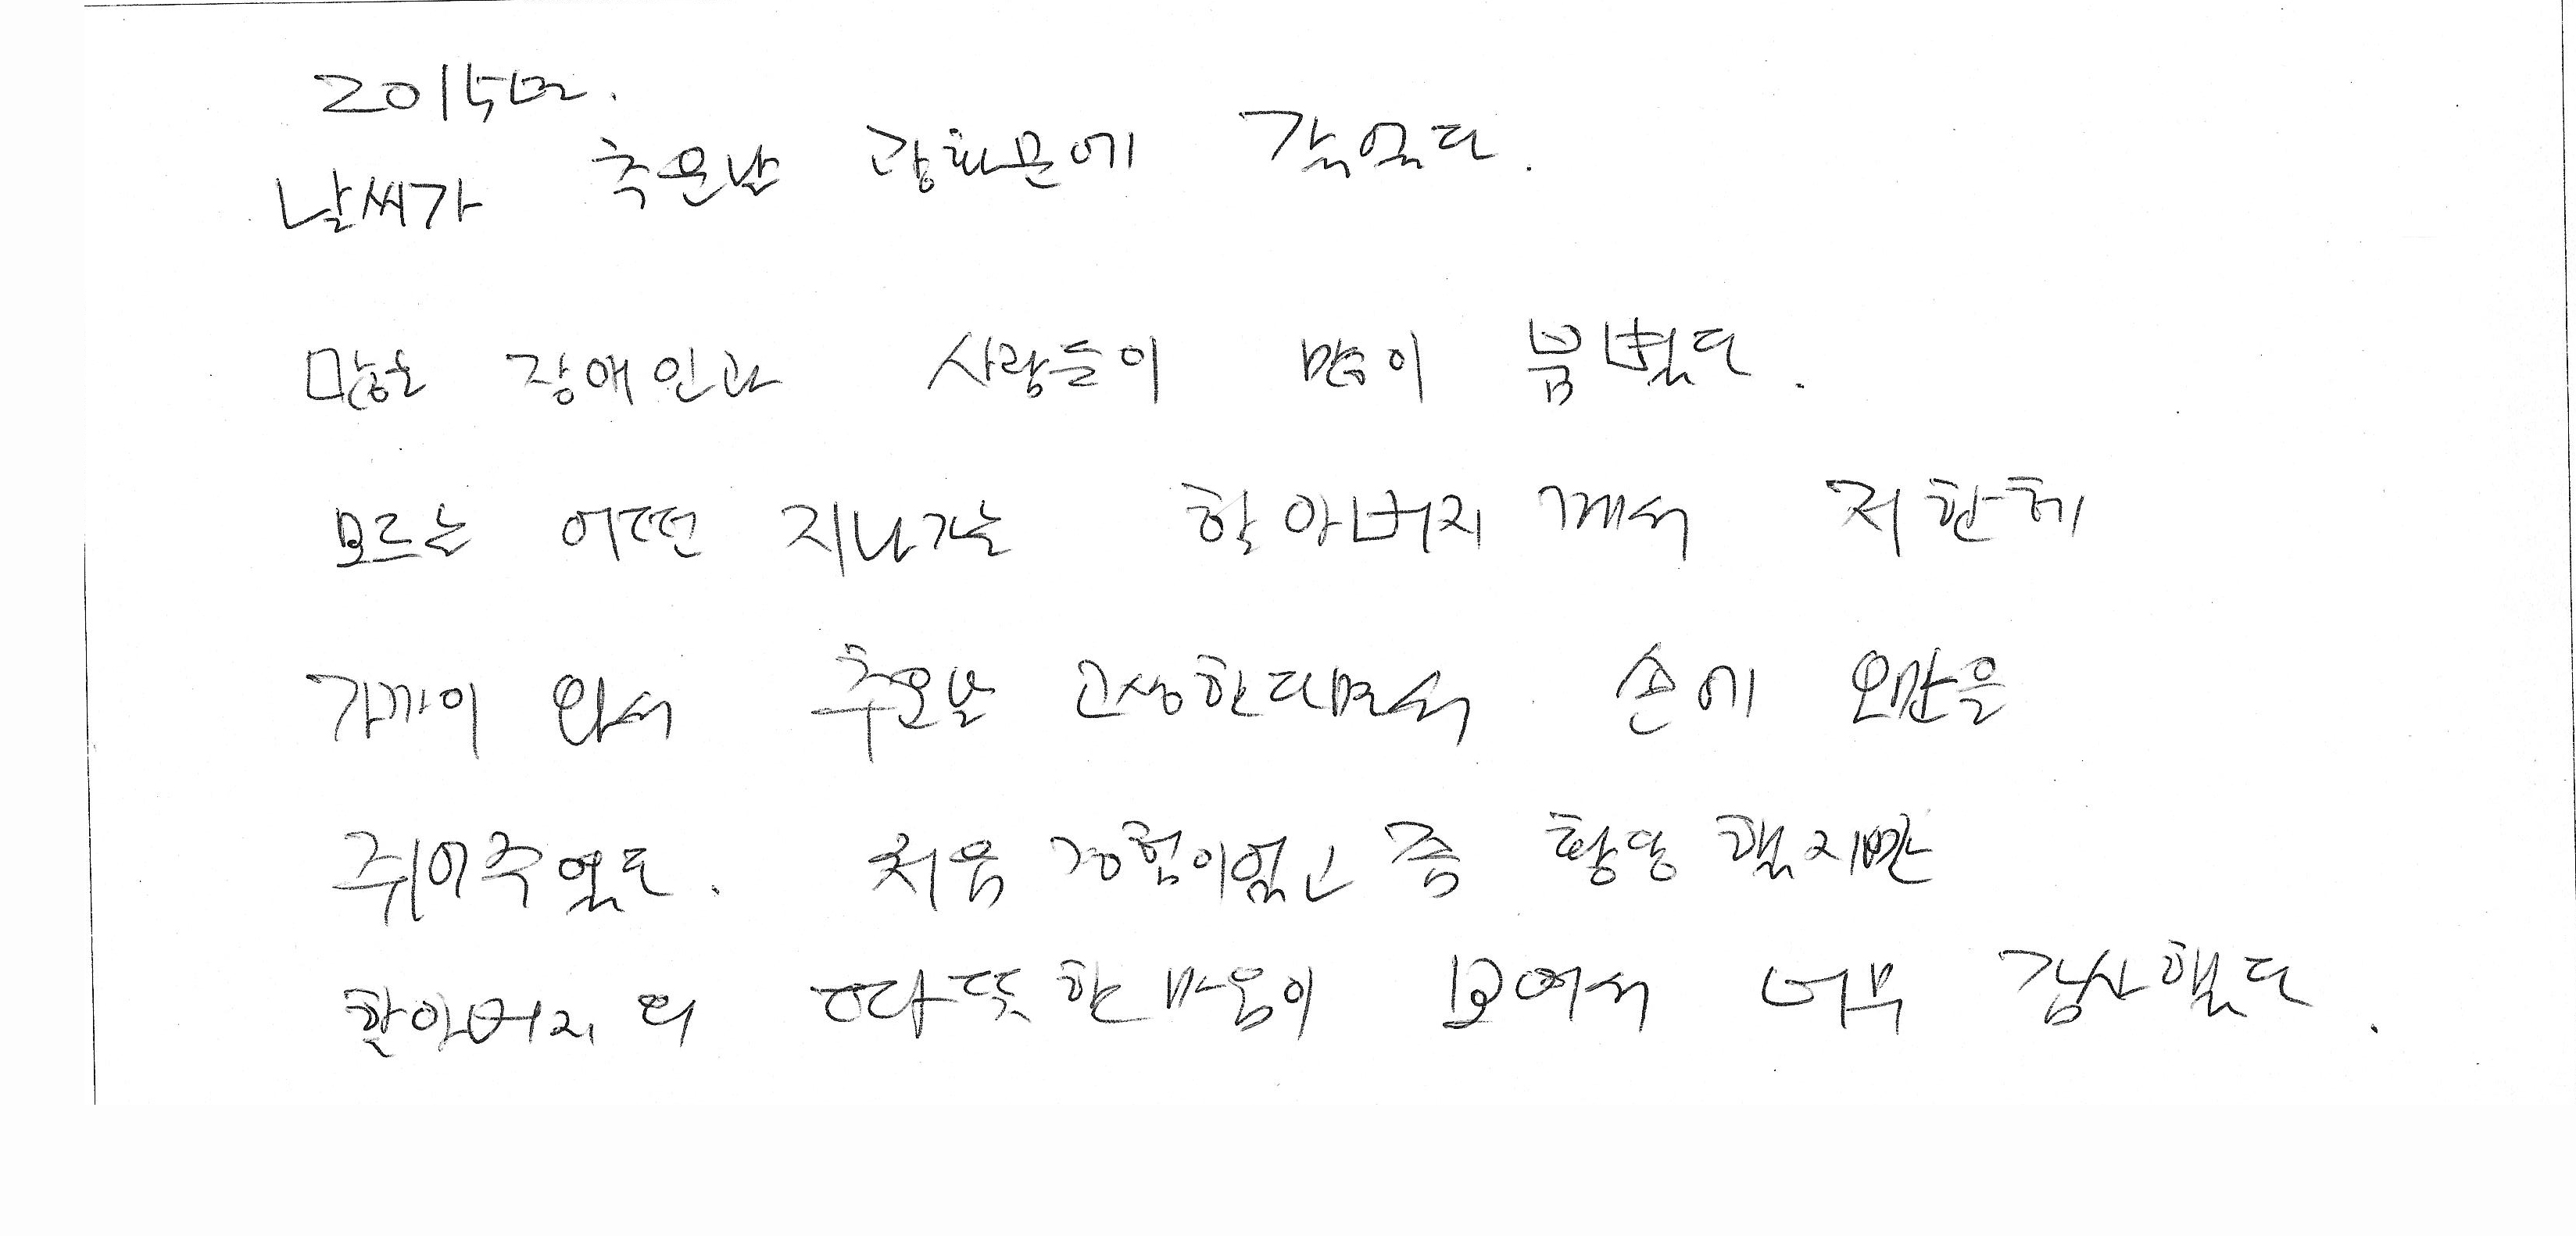 2015년.
날씨가 추운날 광화문에 갔었다.
많은 장애인과 사람들이 많이 붐볐다.
모르는 어떤 지나가는 할아버지 께서 저한체
가까이 와서 추운날 고생한다면서 손에 오만을
쥐어주었다. 처음 경험이었고 좀 황당 했지만
할아버지의 따뜻한 마음이 보여서 너무 감사했다.